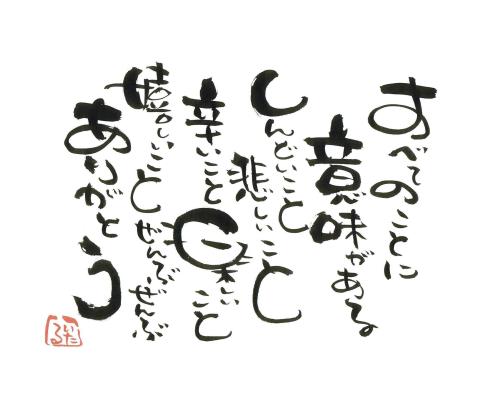 すべてのことに
意味がある
しんどいこと
悲しいこと
辛いこと
楽しいこと
嬉しいこと
ぜんぶぜんぶ
ありがとう